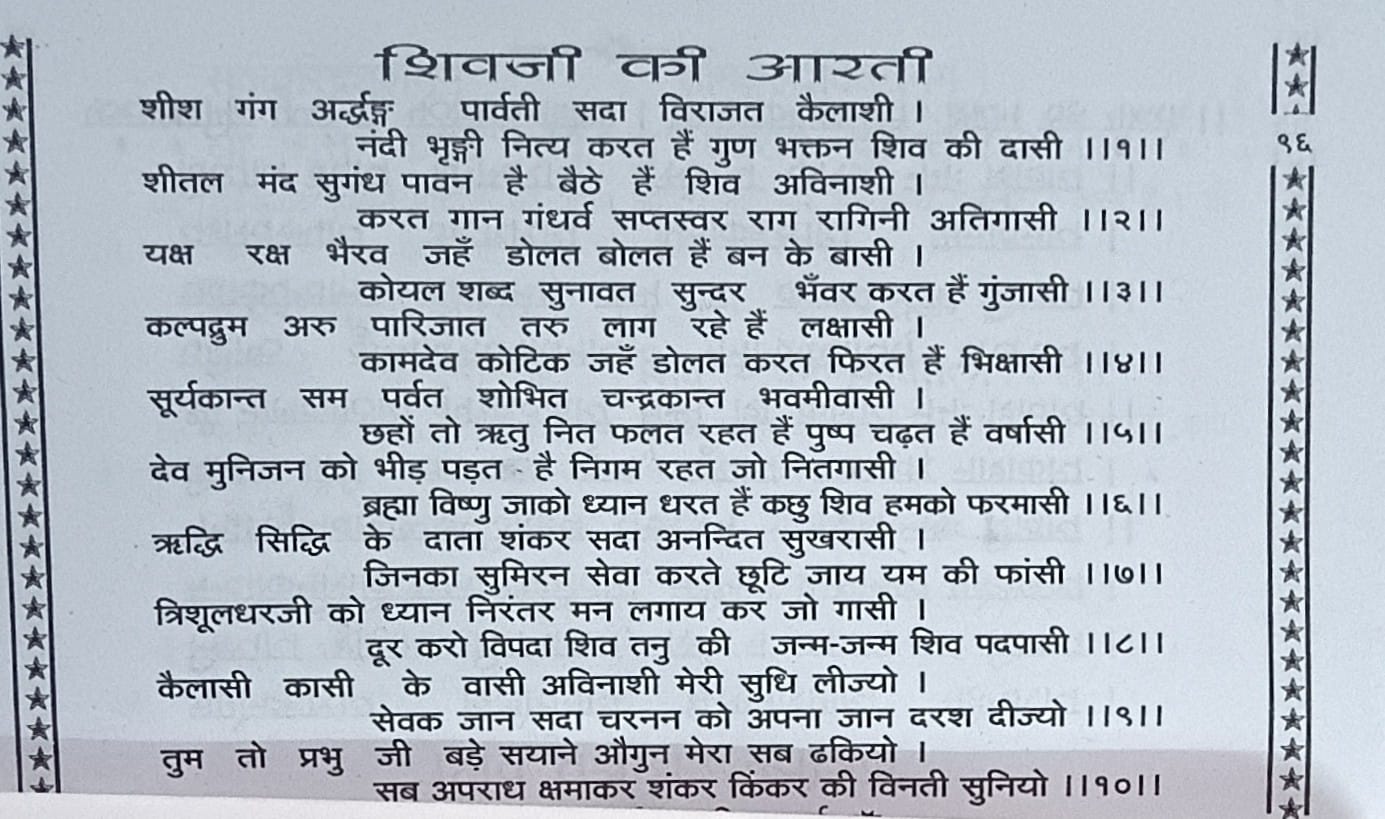 शिवजी की आरती
शीश गंग अर्द्धङ्ग पार्वती सदा विराजत कैलाशी ।
नंदी भृङ्गी नित्य करत हैं गुण भक्तन शिव की दासी ।।१।।
१६
शीतल मंद सुगंध पावन है बैठे हैं शिव अविनाशी ।
करत गान गंधर्व सप्तस्वर राग रागिनी अतिगासी ।।२।।
यक्ष रक्ष भैरव जहँ डोलत बोलत हैं बन के बासी ।
कोयल शब्द सुनावत सुन्दर भँवर करत हैं गुंजासी ।।३।।
कल्पद्रुम अरु पारिजात तरु लाग रहे हैं लक्षासी ।
कामदेव कोटिक जहँ डोलत करत फिरत हैं भिक्षासी ।।४।।
सूर्यकान्त सम पर्वत शोभित चन्द्रकान्त भवमीवासी ।
छहों तो ऋतु नित फलत रहत हैं पुष्प चढ़त हैं वर्षासी ।।५।।
देव मुनिजन को भीड़ पड़त है निगम रहत जो नितगासी ।
ब्रह्मा विष्णु जाको ध्यान धरत हैं कछु शिव हमको फरमासी ।।६।।
ऋद्धि सिद्धि के दाता शंकर सदा अनन्दित सुखरासी ।
जिनका सुमिरन सेवा करते छूटि जाय यम की फांसी ।।७।।
त्रिशूलधरजी को ध्यान निरंतर मन लगाय कर जो गासी ।
दूर करो विपदा शिव तनु की जन्म-जन्म शिव पदपासी ।।८।।
कैलासी कासी के वासी अविनाशी मेरी सुधि लीज्यो ।
सेवक जान सदा चरनन को अपना जान दरश दीज्यो ।।९।।
तुम तो प्रभु जी बड़े सयाने औगुन मेरा सब ढकियो ।
सब अपराध क्षमाकर शंकर किंकर की विनती सुनियो ।।१०।।